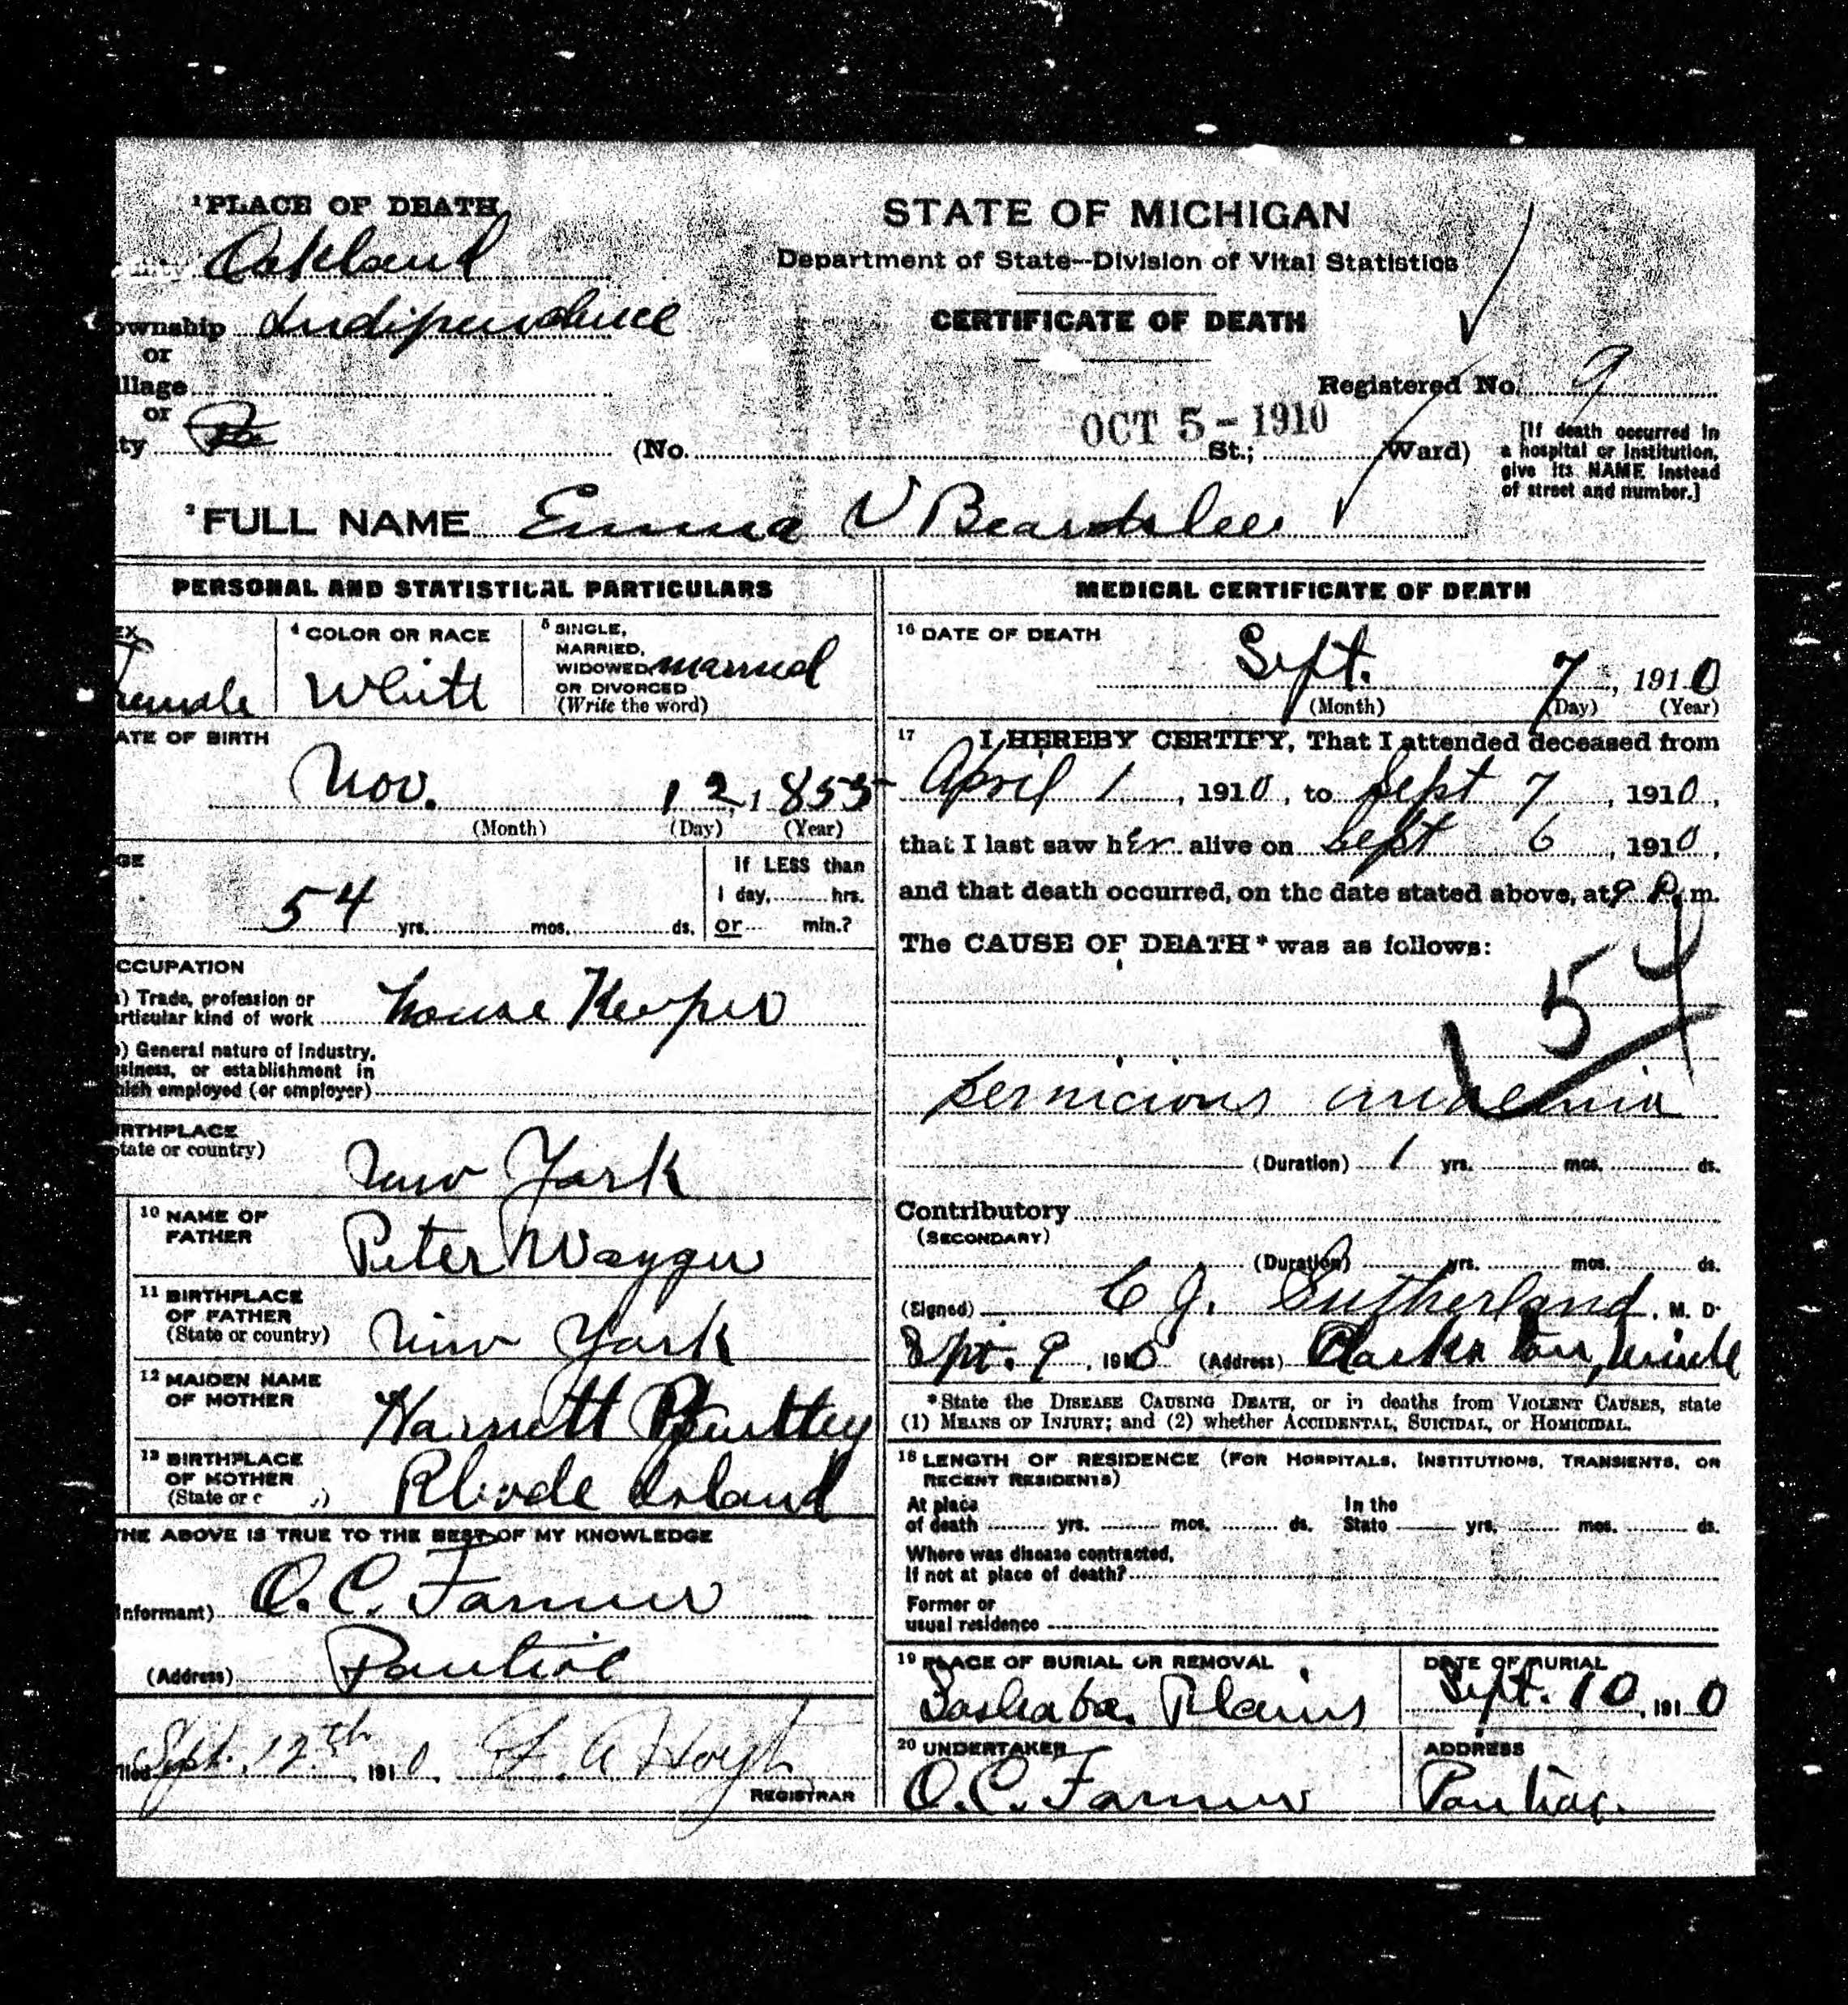 ¹PLACE OF DEATH
Oakland
ownship Indipendence
or
illage
or
ity
STATE OF MICHIGAN
Department of State—Division of Vital Statistics
CERTIFICATE OF DEATH
Registered No. 9
OCT 5 - 1910
(No. St.; Ward)
[If death occurred in
a hospital or institution,
give its NAME instead
of street and number.]
²FULL NAME Emma V Beardslee
PERSONAL AND STATISTICAL PARTICULARS
EX
Female
⁴ COLOR OR RACE
White
⁵ SINGLE,
MARRIED,
WIDOWED, married
OR DIVORCED
(Write the word)
ATE OF BIRTH
Nov. 12, 1855
(Month) (Day) (Year)
GE
54 yrs. mos. ds.
If LESS than
1 day, hrs.
or min.?
CCUPATION
) Trade, profession or
articular kind of work house Keeper
) General nature of industry,
siness, or establishment in
hich employed (or employer)
IRTHPLACE
tate or country)
New York
¹⁰ NAME OF
FATHER
Peter
¹¹ BIRTHPLACE
OF FATHER
(State or country)
New York
¹² MAIDEN NAME
OF MOTHER
Harriett
¹³ BIRTHPLACE
OF MOTHER
(State or c ,)
Rhode Island
THE ABOVE IS TRUE TO THE BEST OF MY KNOWLEDGE
Informant) O. C. Farmer
(Address) Pontiac
iled Sept. 12th, 1910. A Hoyt
REGISTRAR
MEDICAL CERTIFICATE OF DEATH
¹⁶ DATE OF DEATH
Sept. 7, 1910
(Month) (Day) (Year)
¹⁷ I HEREBY CERTIFY, That I attended deceased from
April 1, 1910, to Sept 7, 1910,
that I last saw her alive on Sept 6, 1910,
and that death occurred, on the date stated above, at 9 P. m.
The CAUSE OF DEATH* was as follows:
54
pernicious anaemia
(Duration) 1 yrs. mos. ds.
Contributory
(SECONDARY)
(Duration) yrs. mos. ds.
(Signed) C J. Sutherland, M. D.
Sept. 9, 1910 (Address) Clarkston, Mich
*State the DISEASE CAUSING DEATH, or in deaths from VIOLENT CAUSES, state
(1) MEANS OF INJURY; and (2) whether ACCIDENTAL, SUICIDAL, or HOMICIDAL.
¹⁸ LENGTH OF RESIDENCE (FOR HOSPITALS, INSTITUTIONS, TRANSIENTS, OR
RECENT RESIDENTS)
At place
of death yrs. mos. ds.
In the
State yrs. mos. ds.
Where was disease contracted,
if not at place of death?
Former or
usual residence
¹⁹ PLACE OF BURIAL OR REMOVAL
Sashaba Plains
DATE OF BURIAL
Sept. 10, 1910
²⁰ UNDERTAKER
O. C. Farmer
ADDRESS
Pontiac.